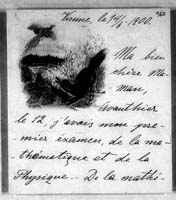 Vienne, le 14/5. 1900.
Ma bien
chère Ma-
man,
avanthier
le 12, j'avais mon pre-
mier éxamen de la ma-
thématique et de la
Physique. - De la mathé-